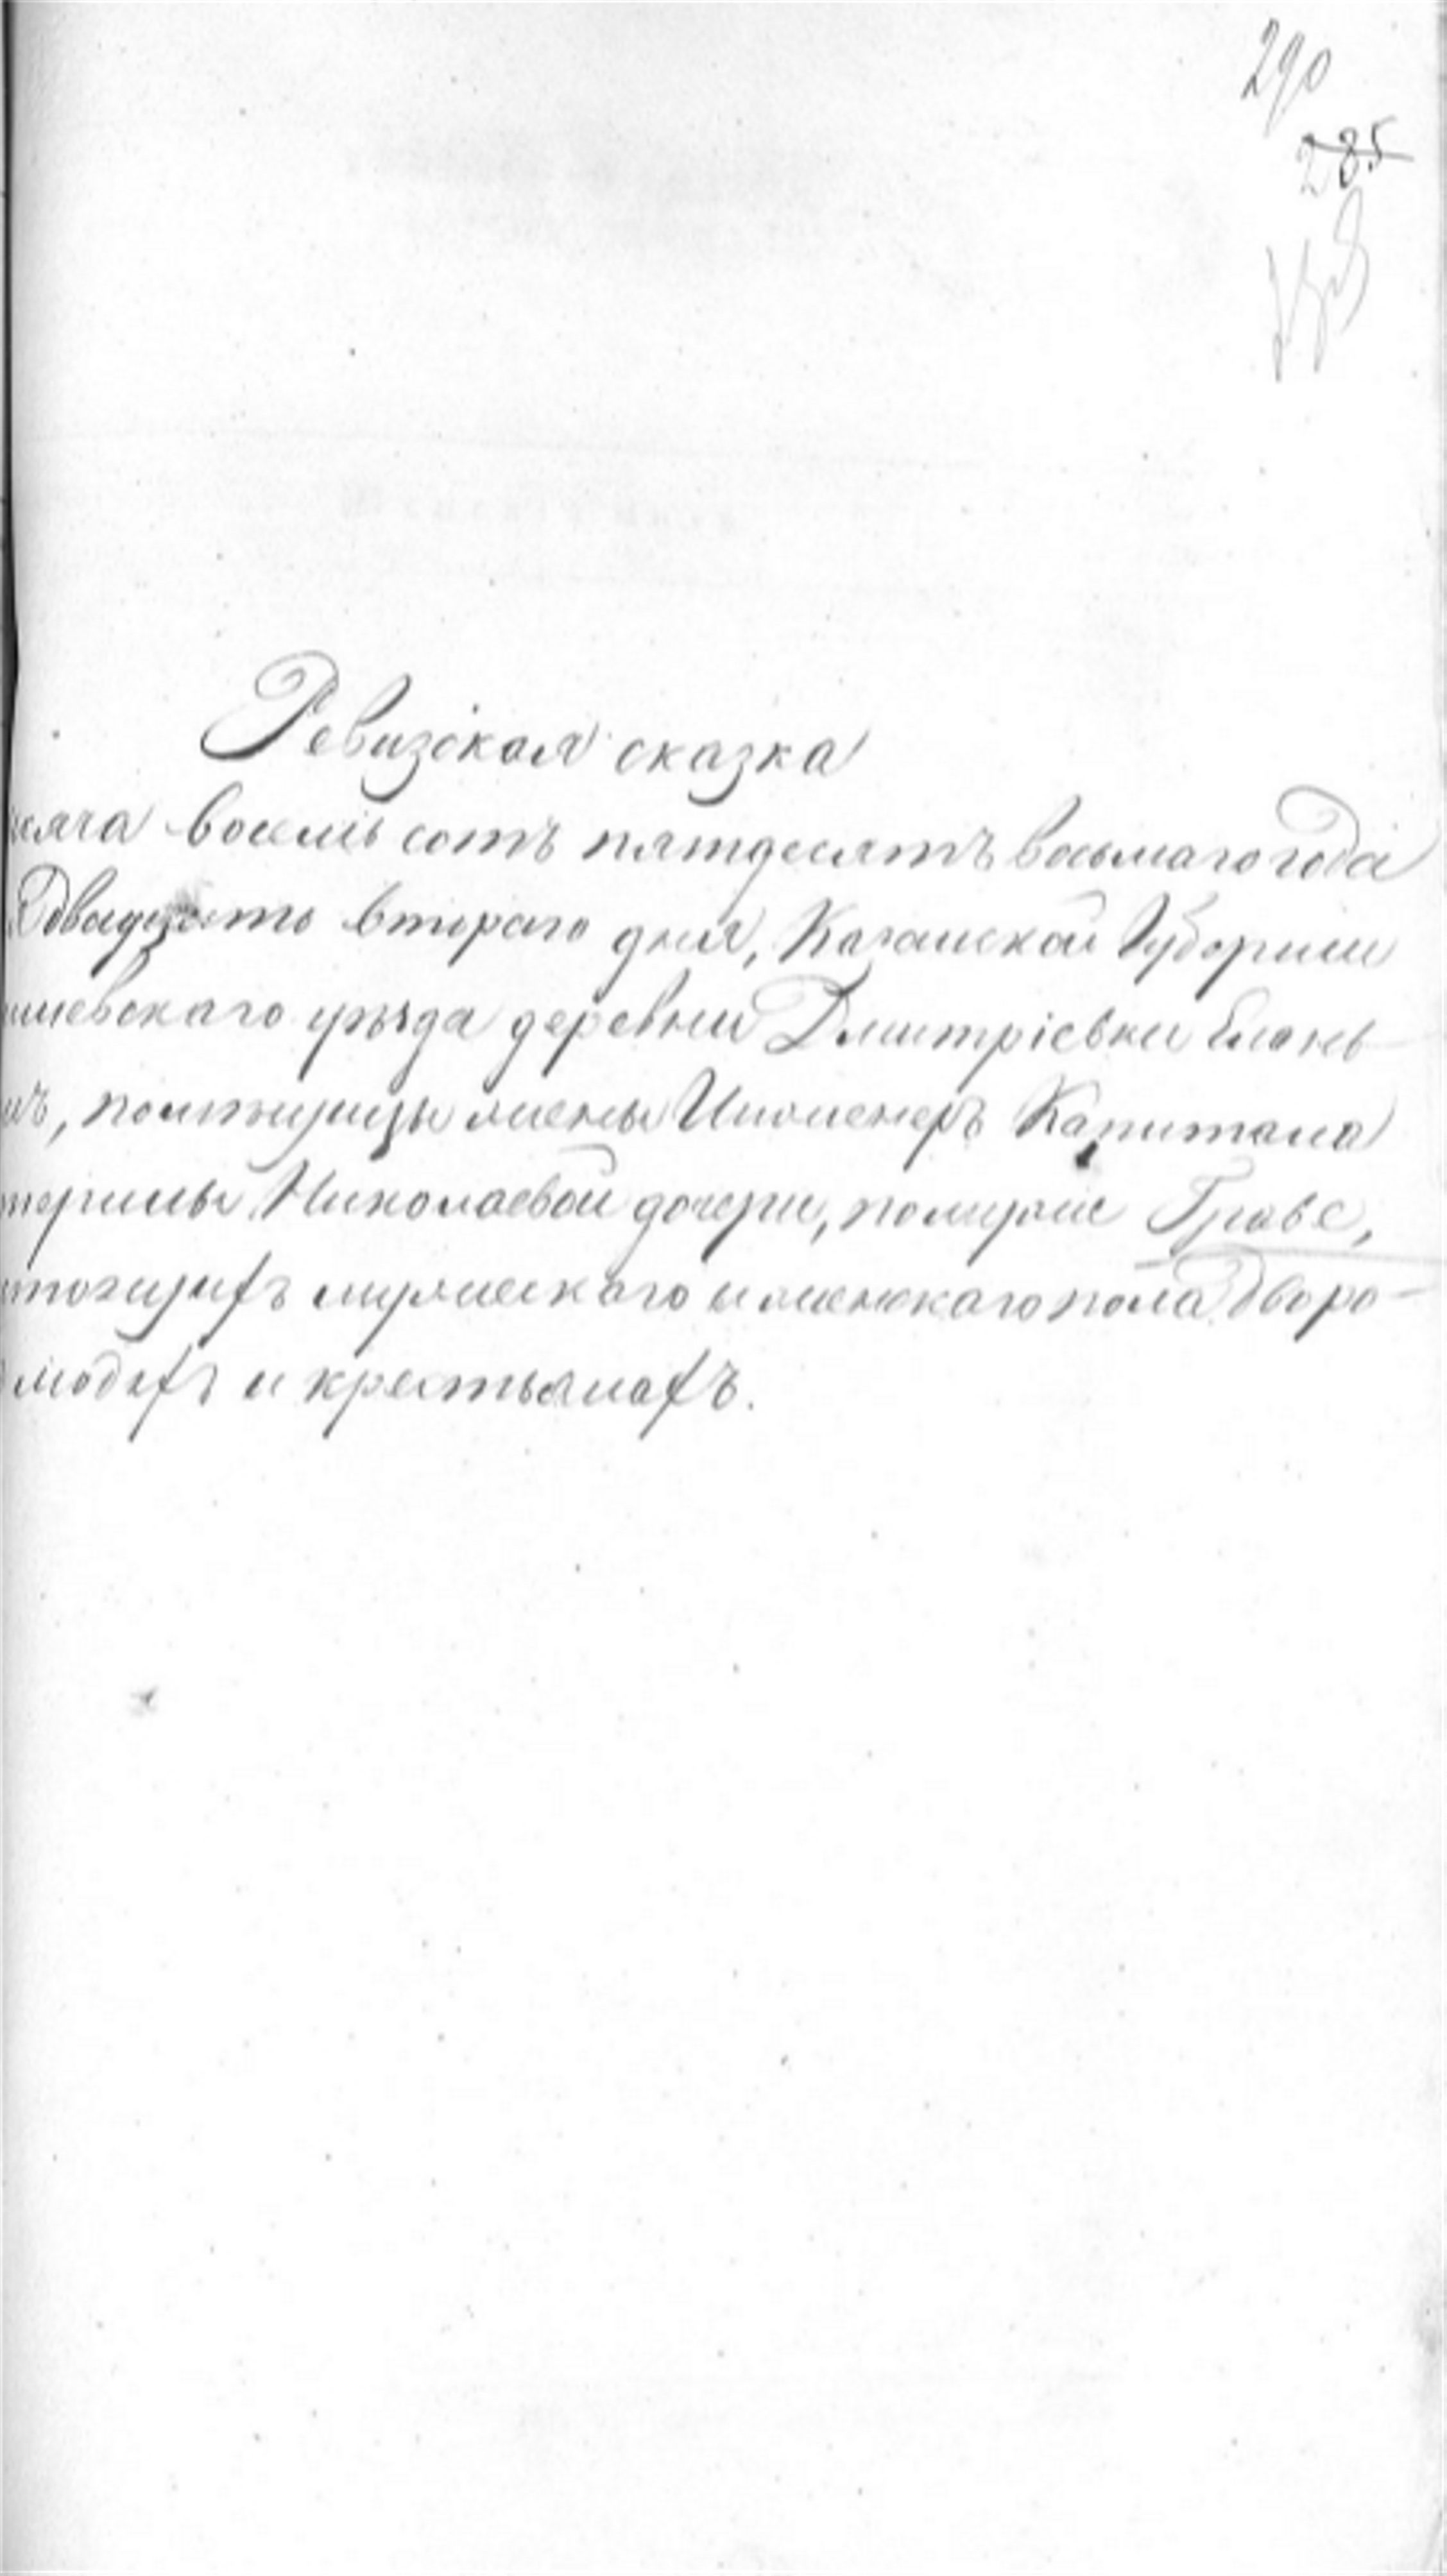 290
285
Ревизская сказка
сяча восемь сотъ пятдесятъ восьмаго года
двадцать втораго дня, Казанской Губернiи
шевскаго уѣзда деревни Дмитрiевки Елань
помѣщицы жены Инженеръ Капитана
терины Николаевой дочери, по мужѣ Граве,
стоящихъ мужескаго и женскаго пола дворо-
людяхъ и крестьянахъ.